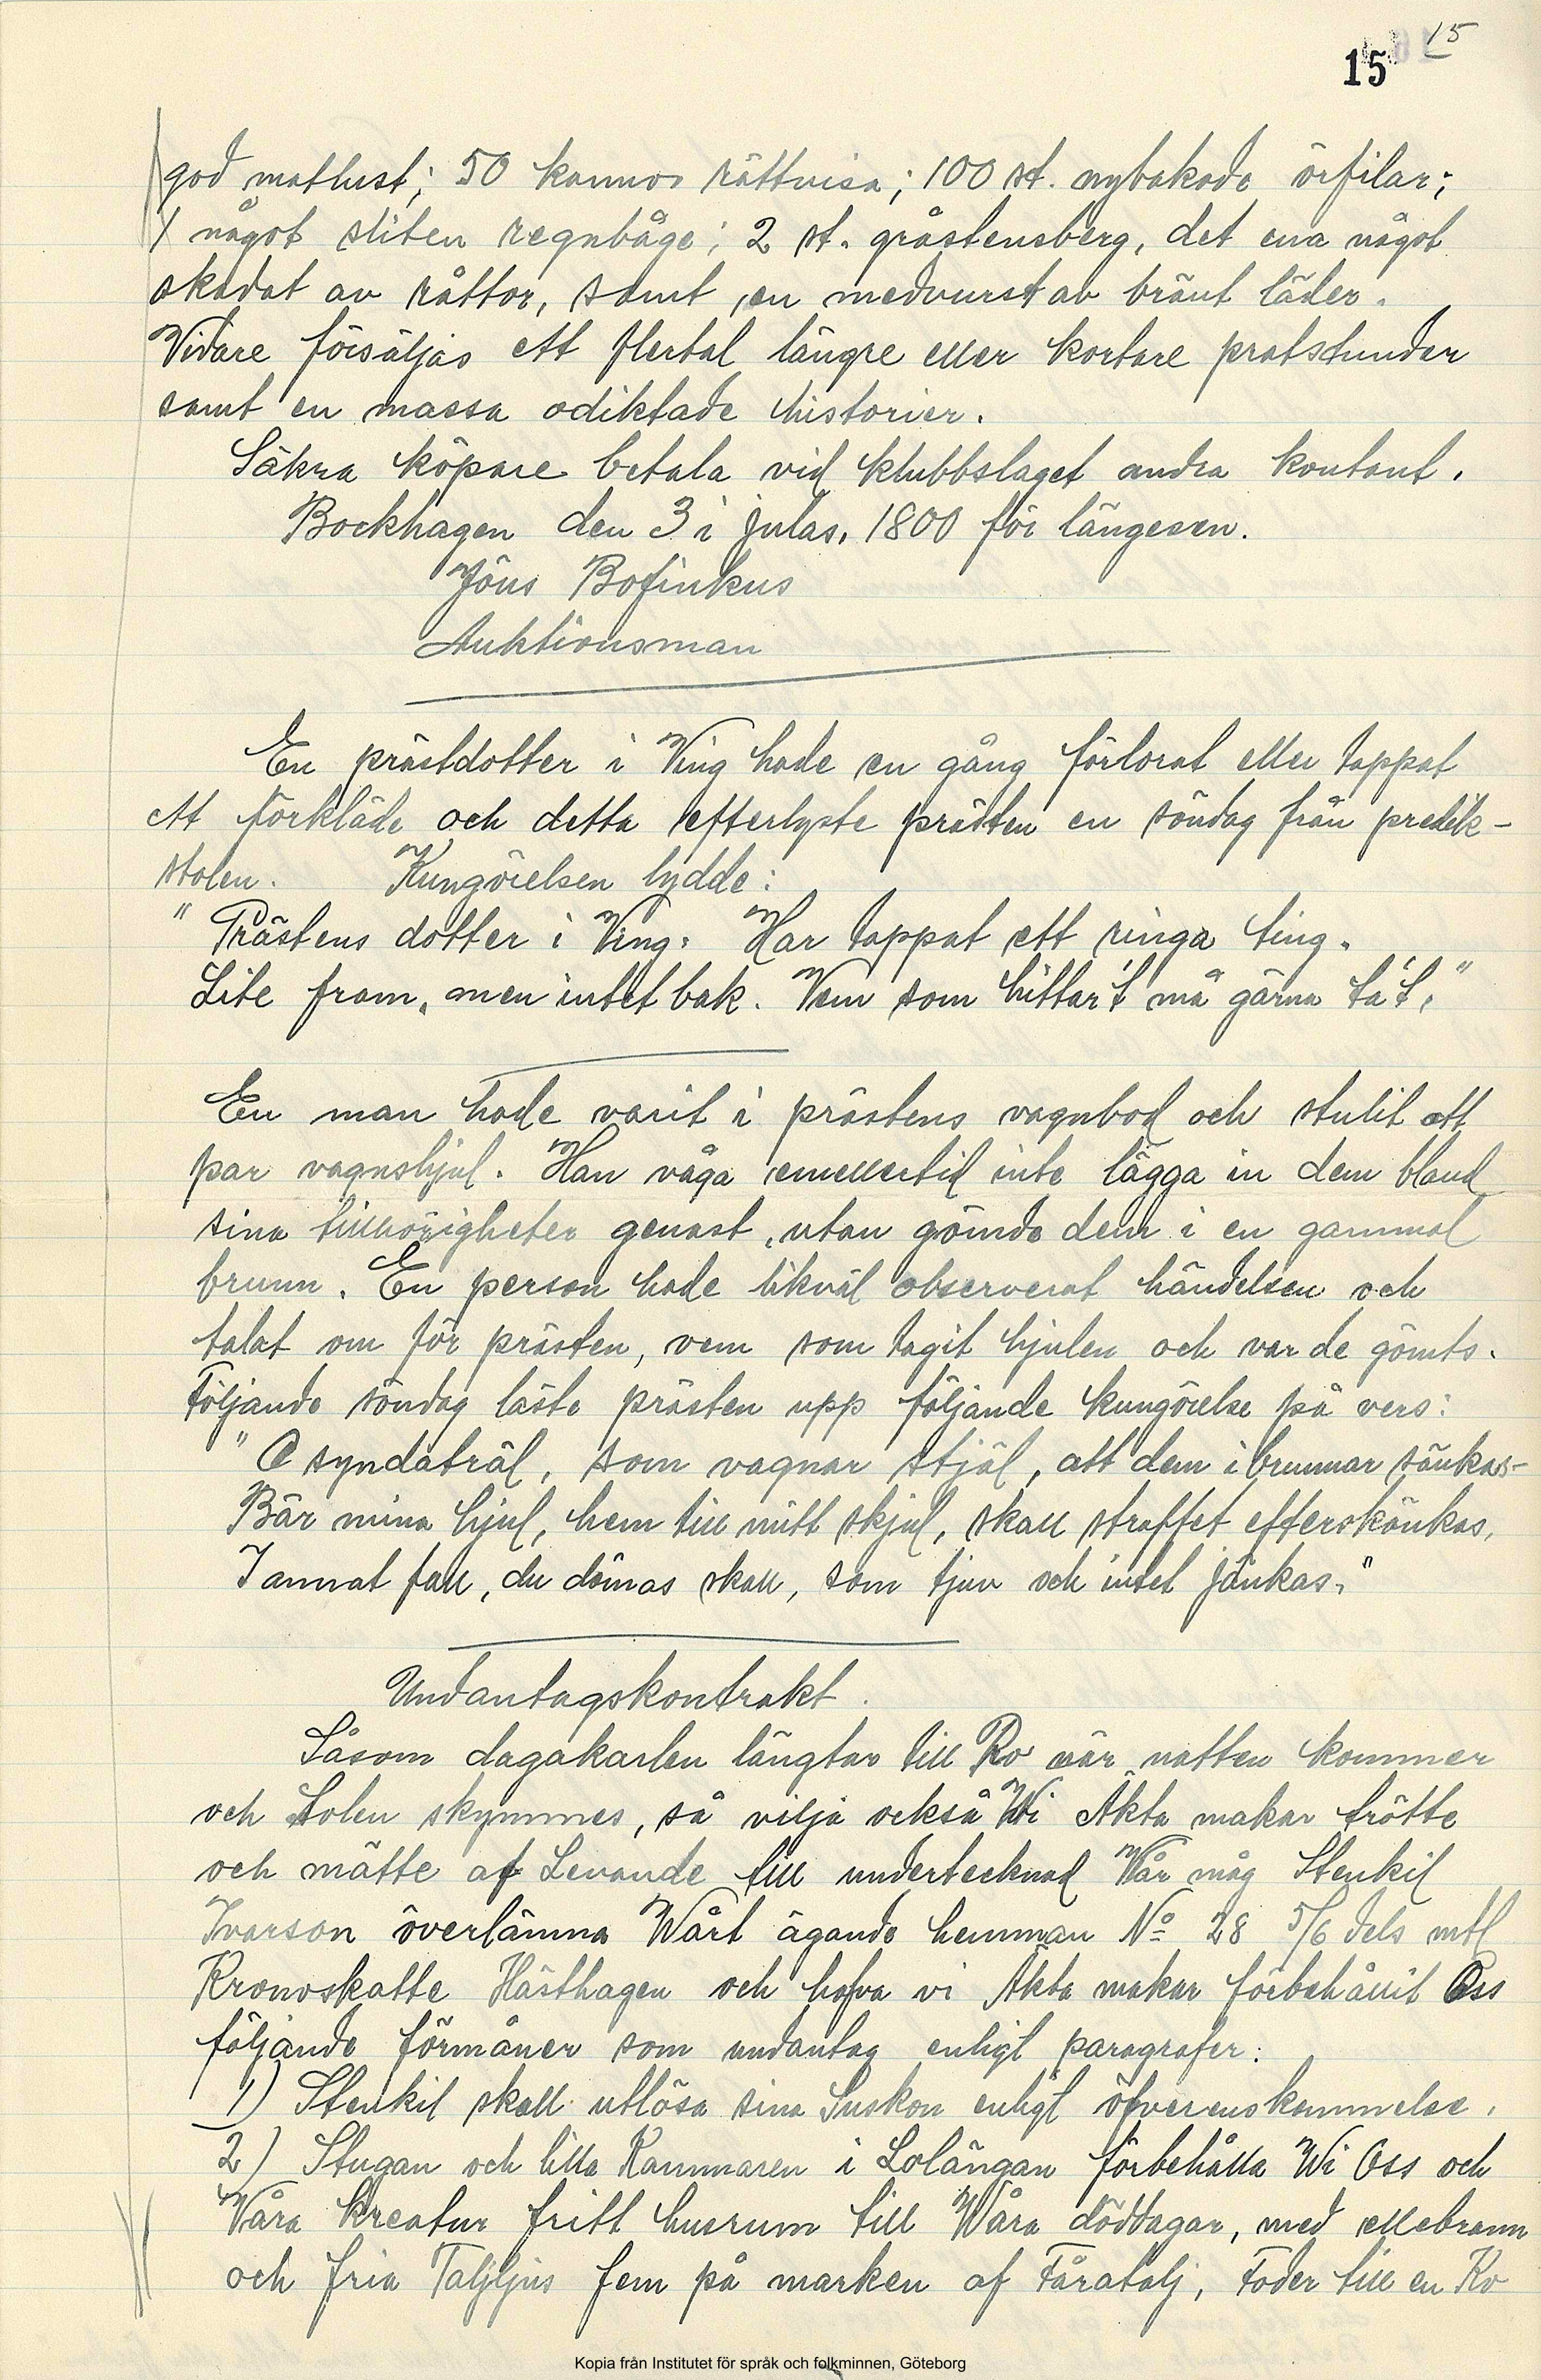 15
15
god matlust; 50 kannor rättvisa; 100 st. nybakade örfilar;
1 något sliten regnbåge; 2 st. gråstensberg, det ena något
skadat av råttor, samt en medvurst av bränt läder.
Vidare försäljas ett flertal längre eller kortare pratstunder
samt en massa odiktade historier.
Säkra köpare betala vid klubbslaget andra kontant.
Bockhagen den 3 i julas, 1800 för längesen.
Jöns Bofinkus
Auktionsman
En prästdotter i Ving hade en gång förlorat eller tappat
ett förkläde och detta efterlyste prästen en söndag från predik-
stolen. Kungörelsen lydde:
"Prästens dotter i Ving. Har tappat ett ringa ting.
Lite fram, men intet bak. Vem som hittar't må gärna ta't."
En man hade varit i prästens vagnbod och stulit ett
par vagnshjul. Han våga emellertid inte lägga in dem bland
sina tillhörigheter genast, utan gömde dem i en gammal
brunn. En person hade likväl observerat händelsen och
talat om för prästen, vem som tagit hjulen och var de gömts.
Följande söndag läste prästen upp följande kungörelse på vers:
"O syndaträl, som vagnar stjäl, att dem i brunnar sänkas-
Bär mina hjul, hem till mitt skjul, skall straffet efterskänkas,
I annat fall, du dömas skall, som tjuv och intet jänkas."
Undantagskontrakt.
Såsom dagakarlen längtar till Ro när natten kommer
och Solen skymmes, så vilja också Wi Äkta makar trötte
och mätte af Levande till undertecknad Wår måg Stenkil
Ivarson överlämna Wårt ägande hemman No 28 5/6 dels mtl
Kronoskatte Hästhagen och hafva vi Äkta makar förbehållit Oss
följande förmåner som undantag enligt paragrafer:
1) Stenkil skall utlösa sina Suskon enligt öfverenskommelse.
2) Stugan och lilla Kammaren i Lolängan förbehålla Wi Oss och
Våra kreatur fritt husrum till Wåra döddagar, med ellebrann
och fria Taljljus fem på marken af Fåratalj, Foder till en Ko
Kopia från Institutet för språk och folkminnen, Göteborg